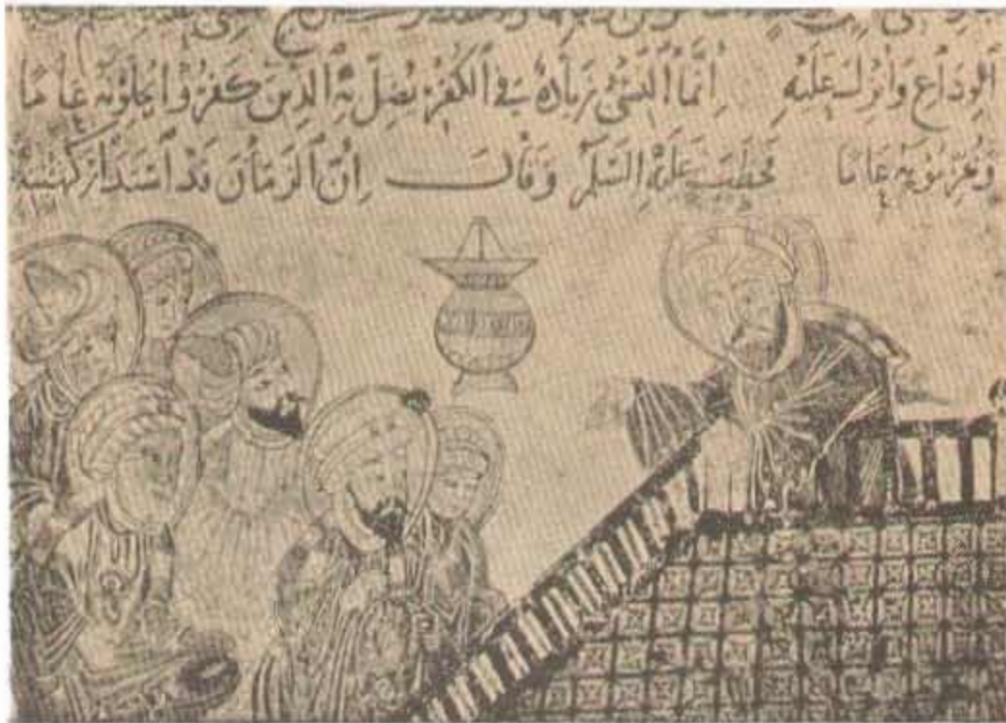 الوداع وانزلت عليه انما النسئ زيادة في الكفر يضل به الذين كفروا يحلونه عاما
ويحرمونه عاما فخطب عليه السلم وقال ان الزمان قد استدار كهيئته